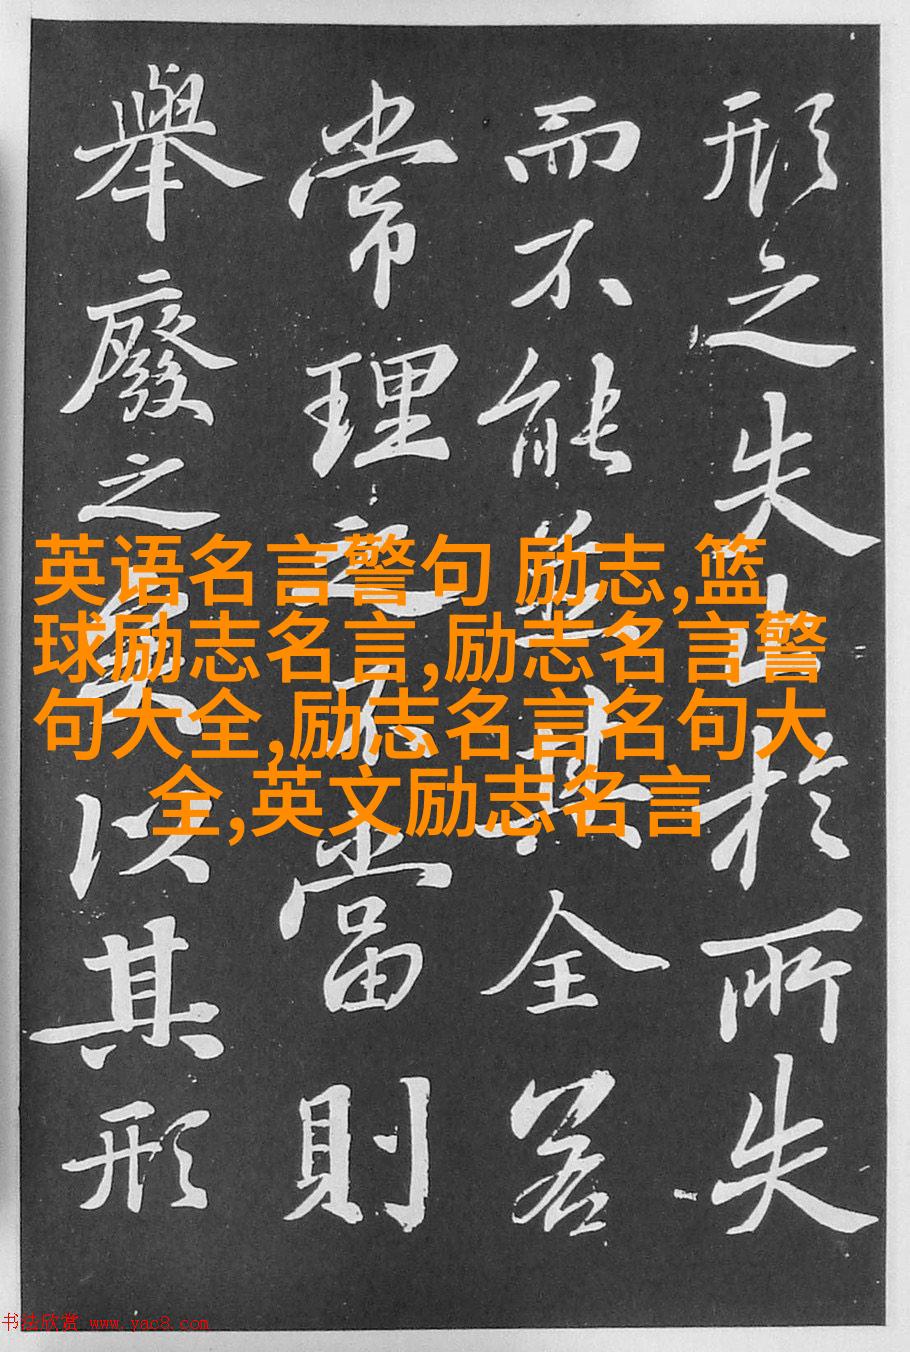 形之失止於所失
而不能其全若
常理之不當則
舉廢之矣以其形
英语名言警句 励志,篮
球励志名言,励志名言警
句大全,励志名言名句大
全,英文励志名言
书法欣赏 www.yac8.com